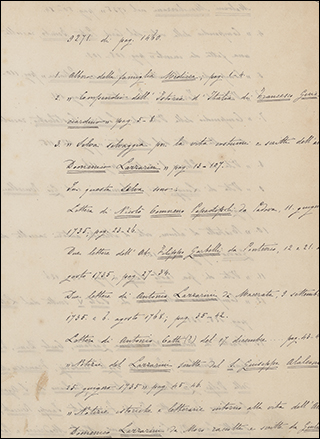 9271 di pag. 1480.
1. Albero della famiglia Molineri, pag. 1-4.
2. « Compendio dell'Istoria d'Italia di Francesco Guic
ciardino » pag. 5-8.
3. « Selva selvaggia per la vita notturna e scritti dell'a
Domenico Lazzarini » pag. 13-187.
In questa Selva sono:
Lettera di Nicolò Comneno Papadopoli da Padova, 11 giugno
1735, pag. 23-26.
Due lettere dell'Ab. Filippo Garbelli da Pontevico, 12 e 21 a
gosto 1765, pag. 27-34.
Due lettere di Antonio Lazzarini da Macerata, 3 settemb
1735 e 6 agosto 1768, pag. 35-42.
Lettera di Antonio Catti (?) del 17 dicembre pag. 43-4
« Notizie del Lazzarini scritte dal Giuseppe
25 giugno 1735 » pag. 45-46.
« Notizie istoriche e letterarie intorno alla vita dell'A
Domenico Lazzarini da Moro raccolte e scritte da